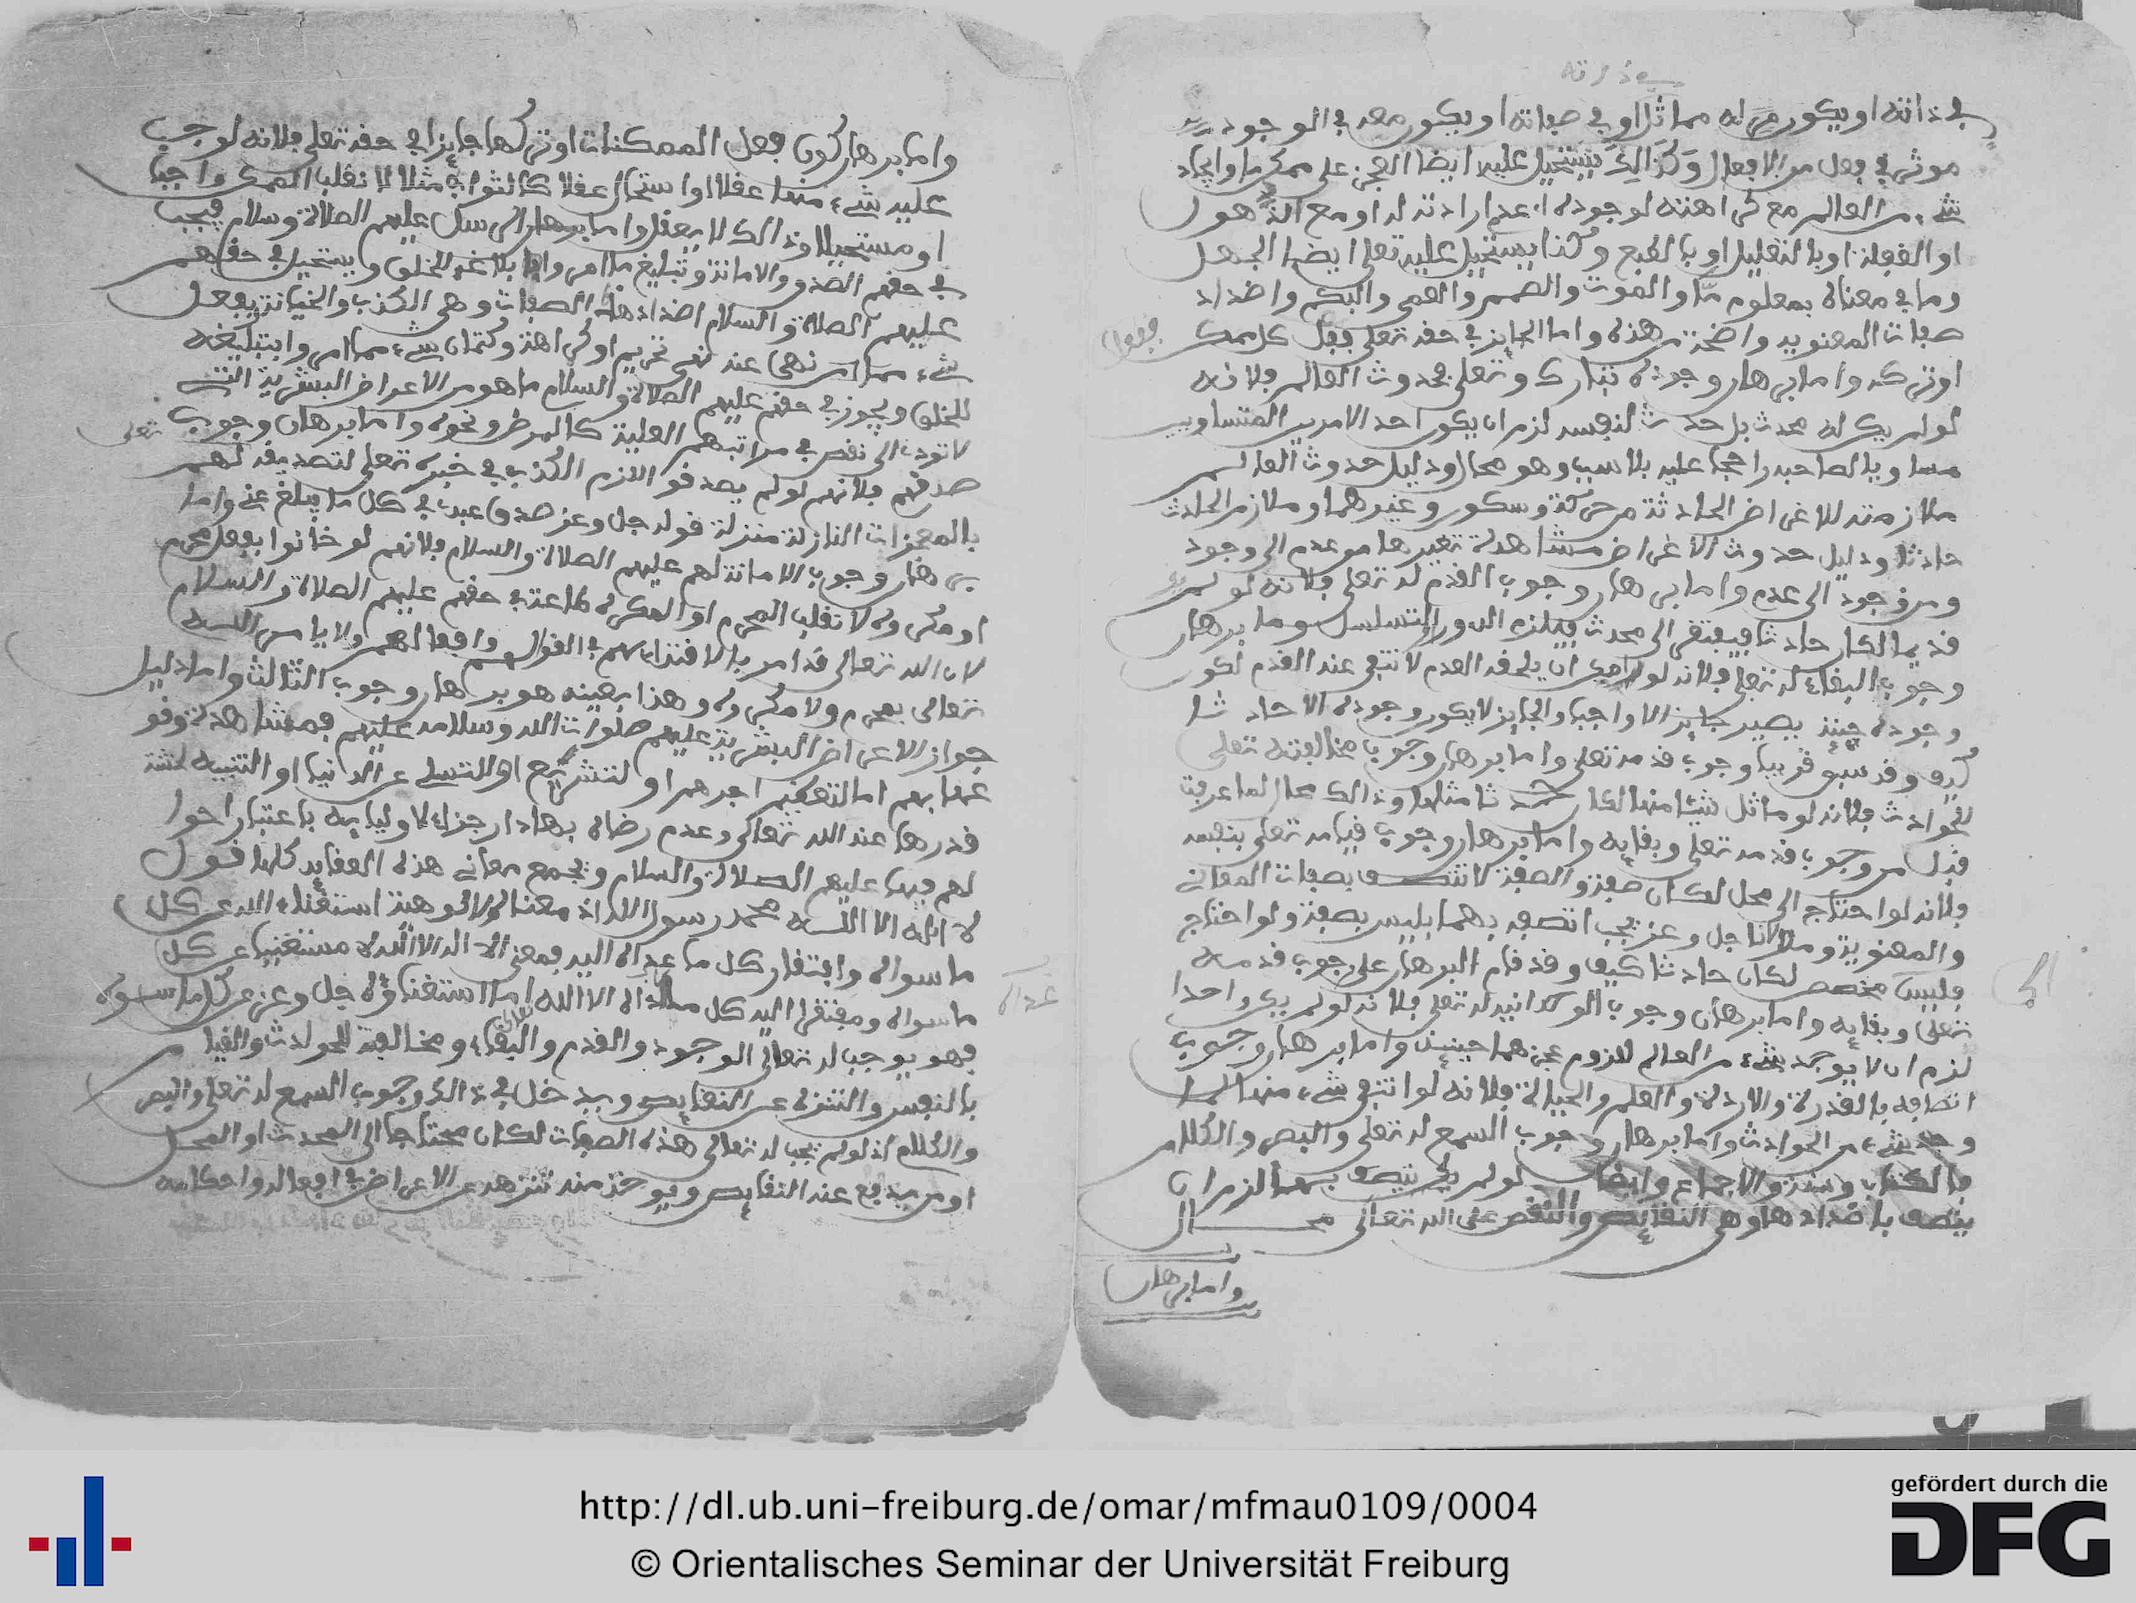 في ذاته
في ذاته او يكون له مماثل او في صفاته او يكون معه في الوجود
موثر في فعل من الافعال وكذالك يستحيل عليه ايضا العجز على ممكن ما وايجاد
شيء من العالم مع كراهته لوجوده اي عدم ارادته له او مع الذهول
او الغفلة او بالتعليل او بالطبع وكذا يستحيل عليه تعلى ايضا الجهل
وما في معناه بمعلوم مّا والموت والصمم والعمى والبكم واضداد
صفات المعنويه واضحة من هذه واما الجايز في حقه تعلى ففعل كل ممكن
او تركه واما برهان وجوده تبارك وتعلى فحدوث العالم فلانه
لو لم يكن له محدث بل حدث لنفسه لزم ان يكون احد الامرين المتساويين
مساويا لصاحبه راجحا عليه بلا سبب وهو محال ودليل حدوث العالم
ملازمته للاعراض الحادثة من حركة وسكون وغيرهما وملازم الحادث
حادث ودليل حدوث الاعراض مشاهدة تغيرها من عدم الى وجود
ومن وجود الى عدم واما برهان وجوب القدم له تعلى فلانه لو لم يكن
قديما لكان حادثا فيفتقر الى محدث فيلزم الدور او التسلسل وما برهان
وجوب البقاء له تعلى فلانه لو امكن ان يلحقه العدم لانتفى عنه القدم لكون
وجوده حينئذ يصير جايزا لا واجبا والجايز لا يكون وجوده الا حادثا
كيف وقد سبق قريبا وجوب قدمه تعلى واما برهان وجوب مخالفته تعلى
للحوادث فلانه لو ماثل شيئا منها لكان حادثا مثلها وذالك محال لما عرفت
قبل من وجوب قدمه تعلى وبقايه واما برهان وجوب قيامه تعلى بنفسه
فلانه لو احتاج الى محل لكان صفة والصفة لا تتصف بصفات المعاني
والمعنوية ومولانا جل وعز يجب اتصافه بهما فليس بصفة ولو احتاج
فليس مخصص لكان حادثا كيف وقد قام البرهان على وجوب قدمه
تعلى وبقايه واما برهان وجوب الوحدانيه له تعلى فلانه لو لم يكن واحدا
لزم ان لا يوجد شيء من العالم للزوم عجزهما حينئذ واما برهان وجوب
اتصافه بالقدرة والارادة والعلم والحياة فلانه لو انتفى شيء منها لما
وجد شيء من الحوادث واما برهان وجوب السمع له تعلى والبصر والكلام
فالكتاب والسنة والاجماع وايضا لو لم يتصف بها لزم ان
يتصف باضدادها وهي النقايص والنقص على الله تعالى محال
واما برهان
واما برهان كون فعل الممكنات او تركها جايزا في حقه تعلى فلانه لو وجب
عليه شيء منها عقلا او استحال عقلا كالثواب مثلا لانقلب الممكن واجبا
او مستحيلا وذالك لا يعقل واما برهان الرسل عليهم الصلاة وسلام فيجب
في حقهم الصدق والامانة وتبليغ ما امروا ببلاغه للخلق ويستحيل في حقهم
عليهم الصلاة والسلام اضداد هذه الصفات وهي الكذب والخيانة بفعل
شيء مما نهى عنه نهي تحريم او كراهة وكتمان شيء مما امروا بتبليغه
للخلق ويجوز في حقهم عليهم الصلاة والسلام ما هو من الاعراض البشرية التي
لا تودي الى نقص في مراتبهم العلية كالمرض ونحوه واما برهان وجوب
صدقهم فلانهم لو لم يصدقوا للزم الكذب في خبره تعلى لتصديقه لهم
بالمعجزات النازلة منزلة قوله جل وعز صدق عبدي في كل ما يبلغ عني واما
برهان وجوب الامانة لهم عليهم الصلاة والسلام فلانهم لو خانوا بفعل محرم
او مكروه لانقلب المحرم او المكروه طاعة في حقهم عليهم الصلاة والسلام
لان الله تعالى قد امر بالاقتداء بهم في اقوالهم وافعالهم ولا يامر الله
تعالى بمحرم ولا مكروه وهذا بعينه هو برهان وجوب الثالث واما دليل
جواز الاعراض البشرية عليهم صلوات الله وسلامه عليهم فمشاهدة وقو
عها بهم اما لتعظيم اجرهم او لتشريع او للتسلي عن الدنيا او التنبيه لخسة
قدرها عند الله تعالى وعدم رضاه بها دار جزاء لاوليايه باعتبار احوا
لهم فيها عليهم الصلاة والسلام ويجمع معاني هذه العقايد كلها قول
لا اله الا الله محمد رسول الله اذ معنى الالوهية استغناء الاله عن كل
ما سواه وافتقار كل ما عداه اليه فمعنى لا اله الا الله لا مستغنيا عن كل
ما سواه ومفتقرا اليه كل ما عداه الا الله اما استغناؤه جل وعز عن كل ما سواه
عداه
فهو يوجب له تعالى الوجود والقدم والبقاء ومخالفة للحوادث والقيام
بالنفس والتنزه عن النقايص ويدخل في ذالك وجوب السمع له تعلى والبصر
والكلام اذ لو لم تجب له تعالى هذه الصفات لكان محتاجا الى المحدث او المحل
او من يدفع عنه النقايص ويوخذ منه تنزهه عن الاعراض في افعاله واحكامه
http://dl.ub.uni-freiburg.de/omar/mfmau0109/0004
© Orientalisches Seminar der Universität Freiburg
gefördert durch die
DFG